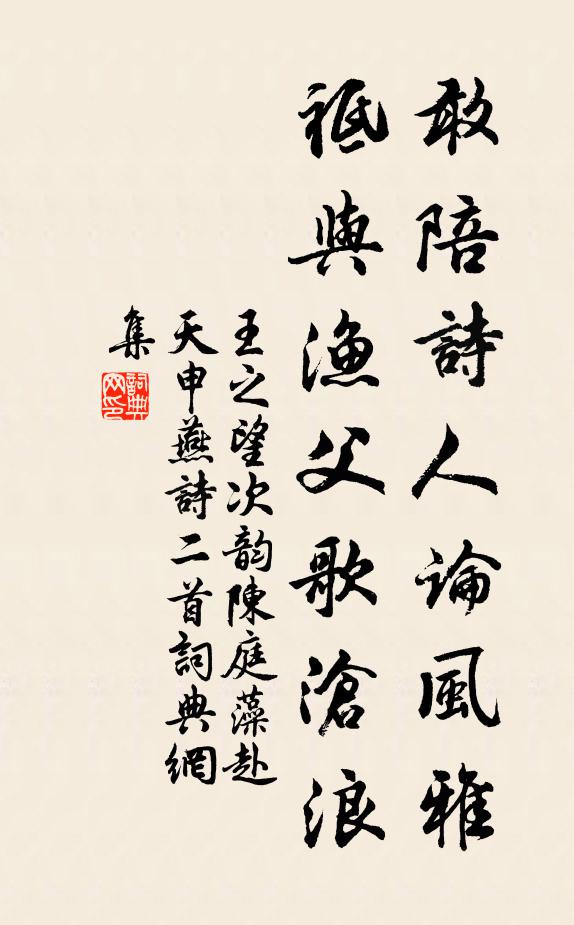 敢陪詩人論風雅
祗與漁父歌滄浪
王之望次韵陳庭藻赴
天申燕詩二首詞典網
集
詞典
网印